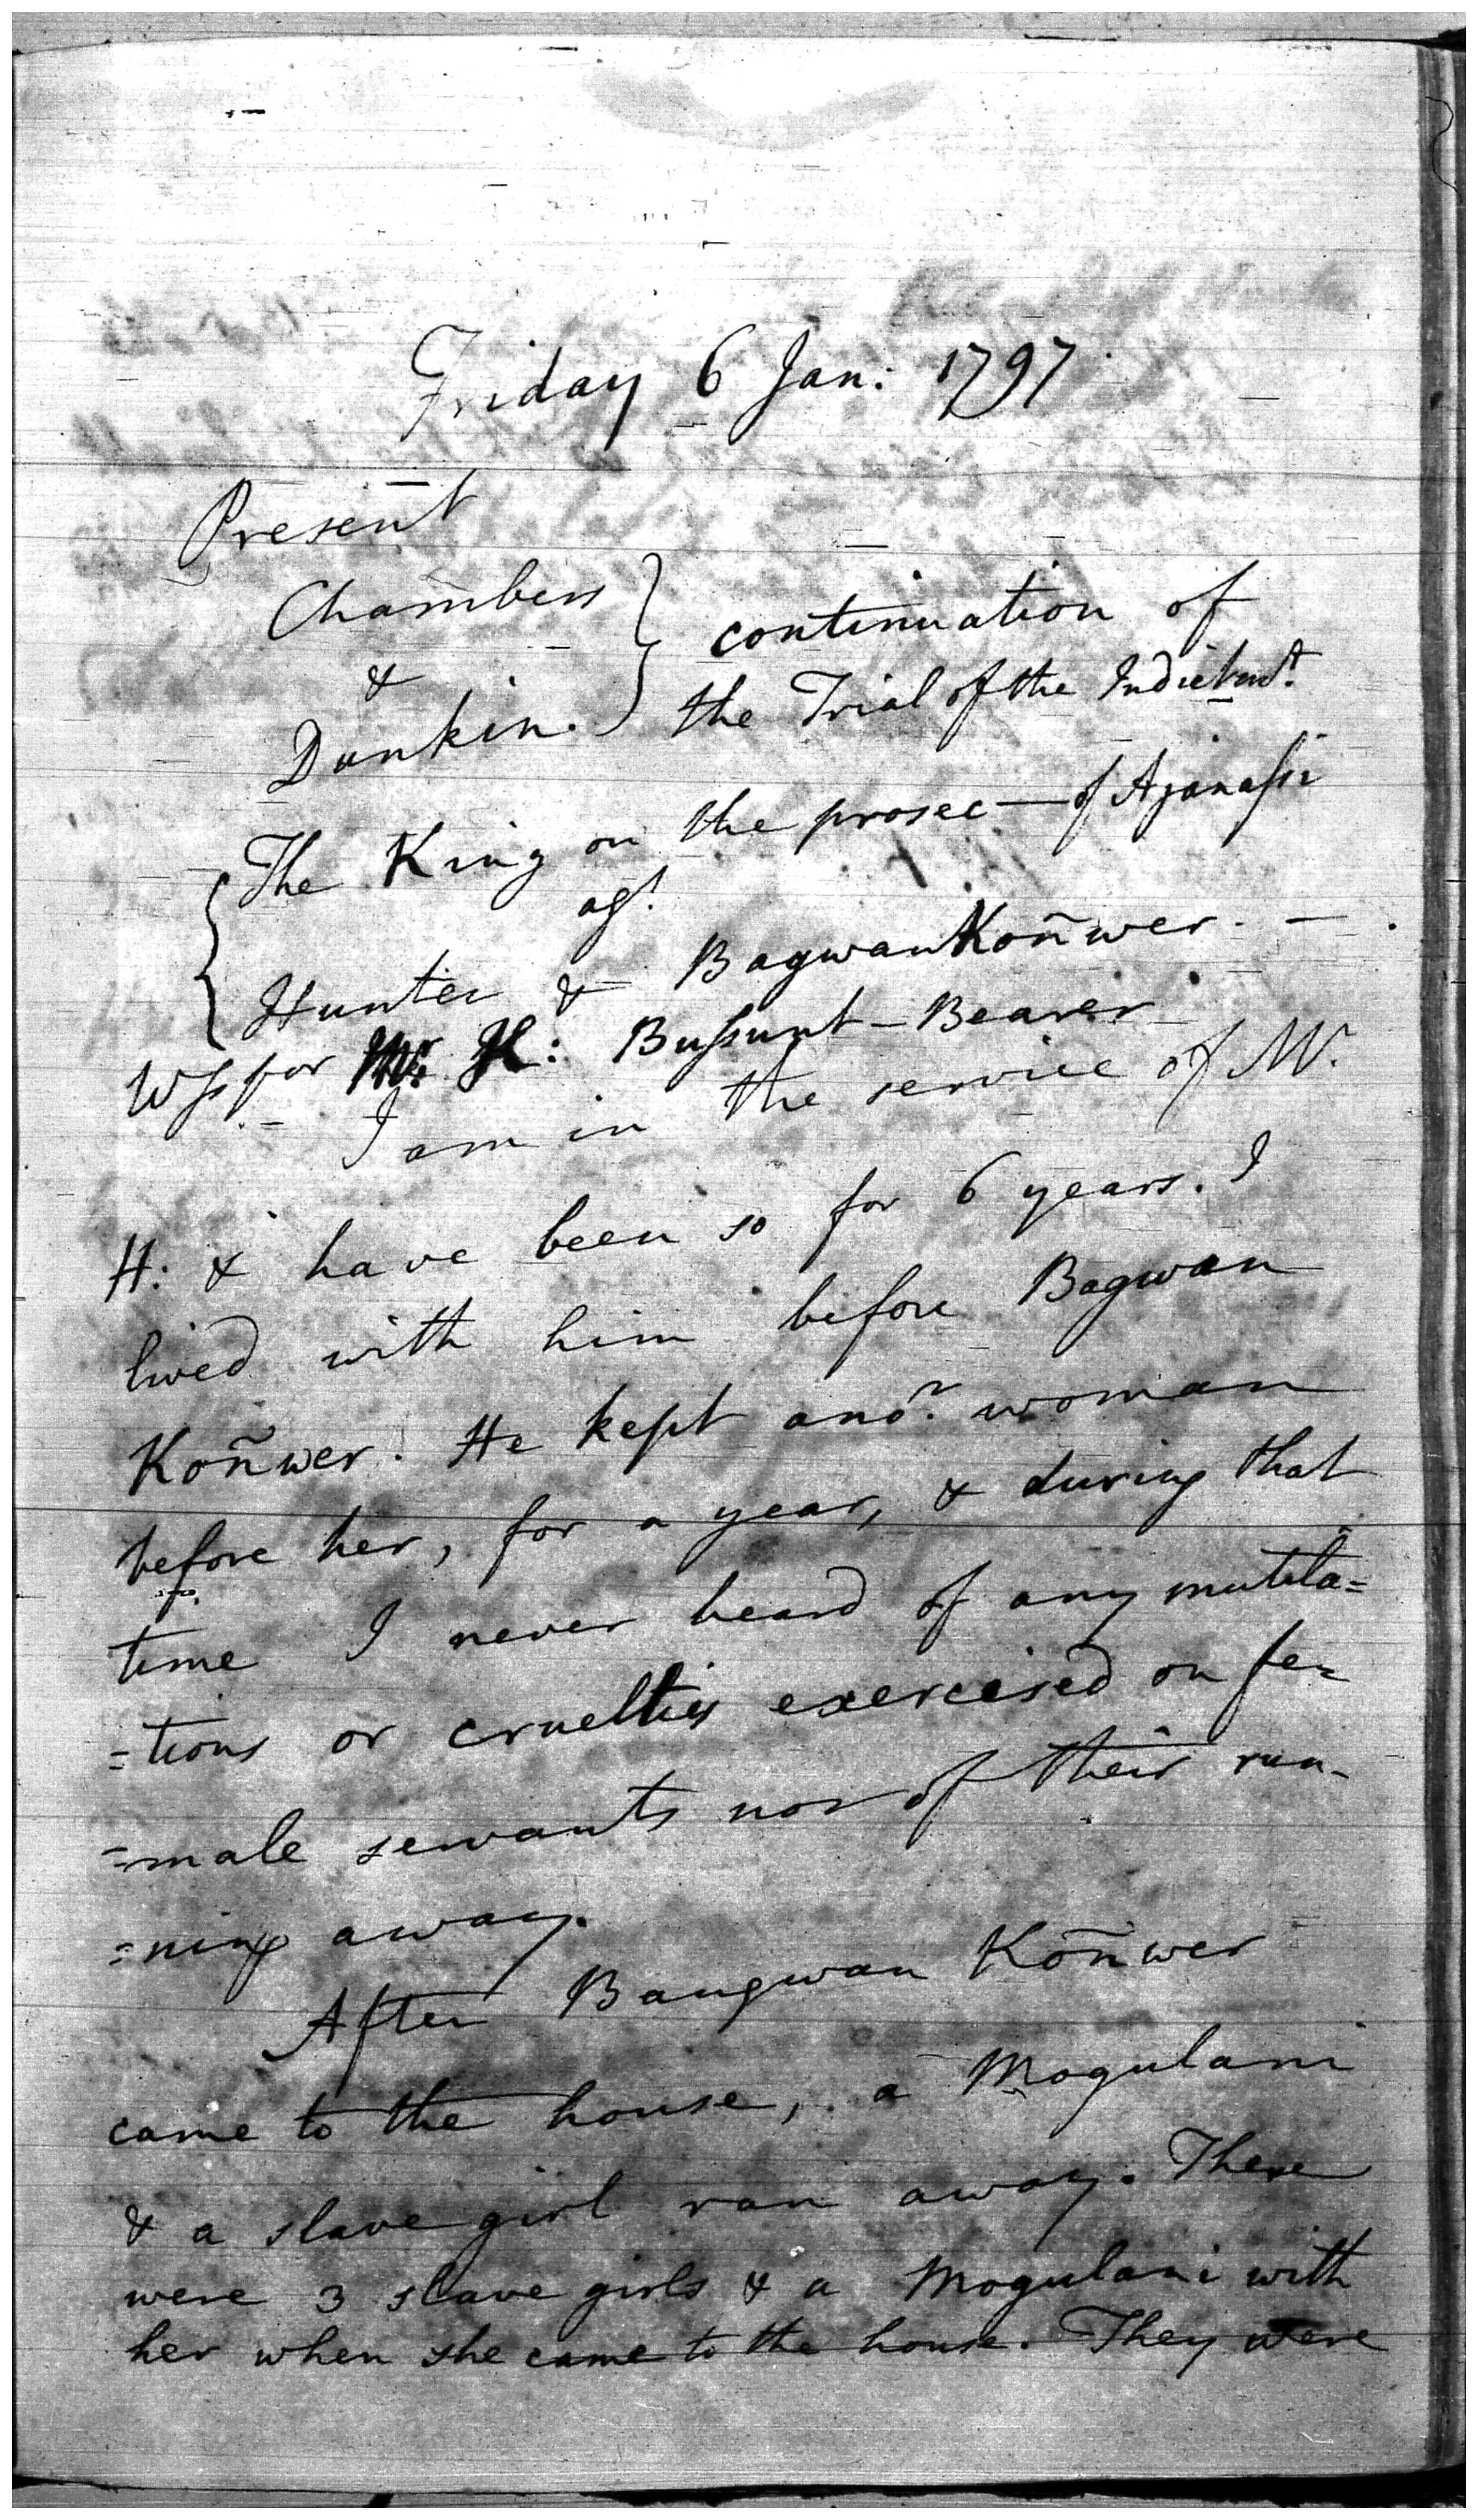 Friday 6 Jan: 1797
Present
Chambers
&
Dunkin. } continuation of
the Trial of the Indictmt.
The King on the prosec— of Ajanassi
agt.
Hunter & Bagwan Koñwer. —
Wss for Mr. H: Bussunt – Bearer
I am in the service of Mr.
H: & have been so for 6 years. I
lived with him before Bagwan
Koñwer. He kept anor. woman
before her, for a year, & during that
time I never heard of any mutila=
=tions or cruelties exercised on fe=
=male servants nor of their run-
=ning away.
After Baugwan Koñwer
came to the house, a Mogulani
& a slave girl ran away. There
were 3 slave girls & a Mogulani with
her when she came to the house. They were